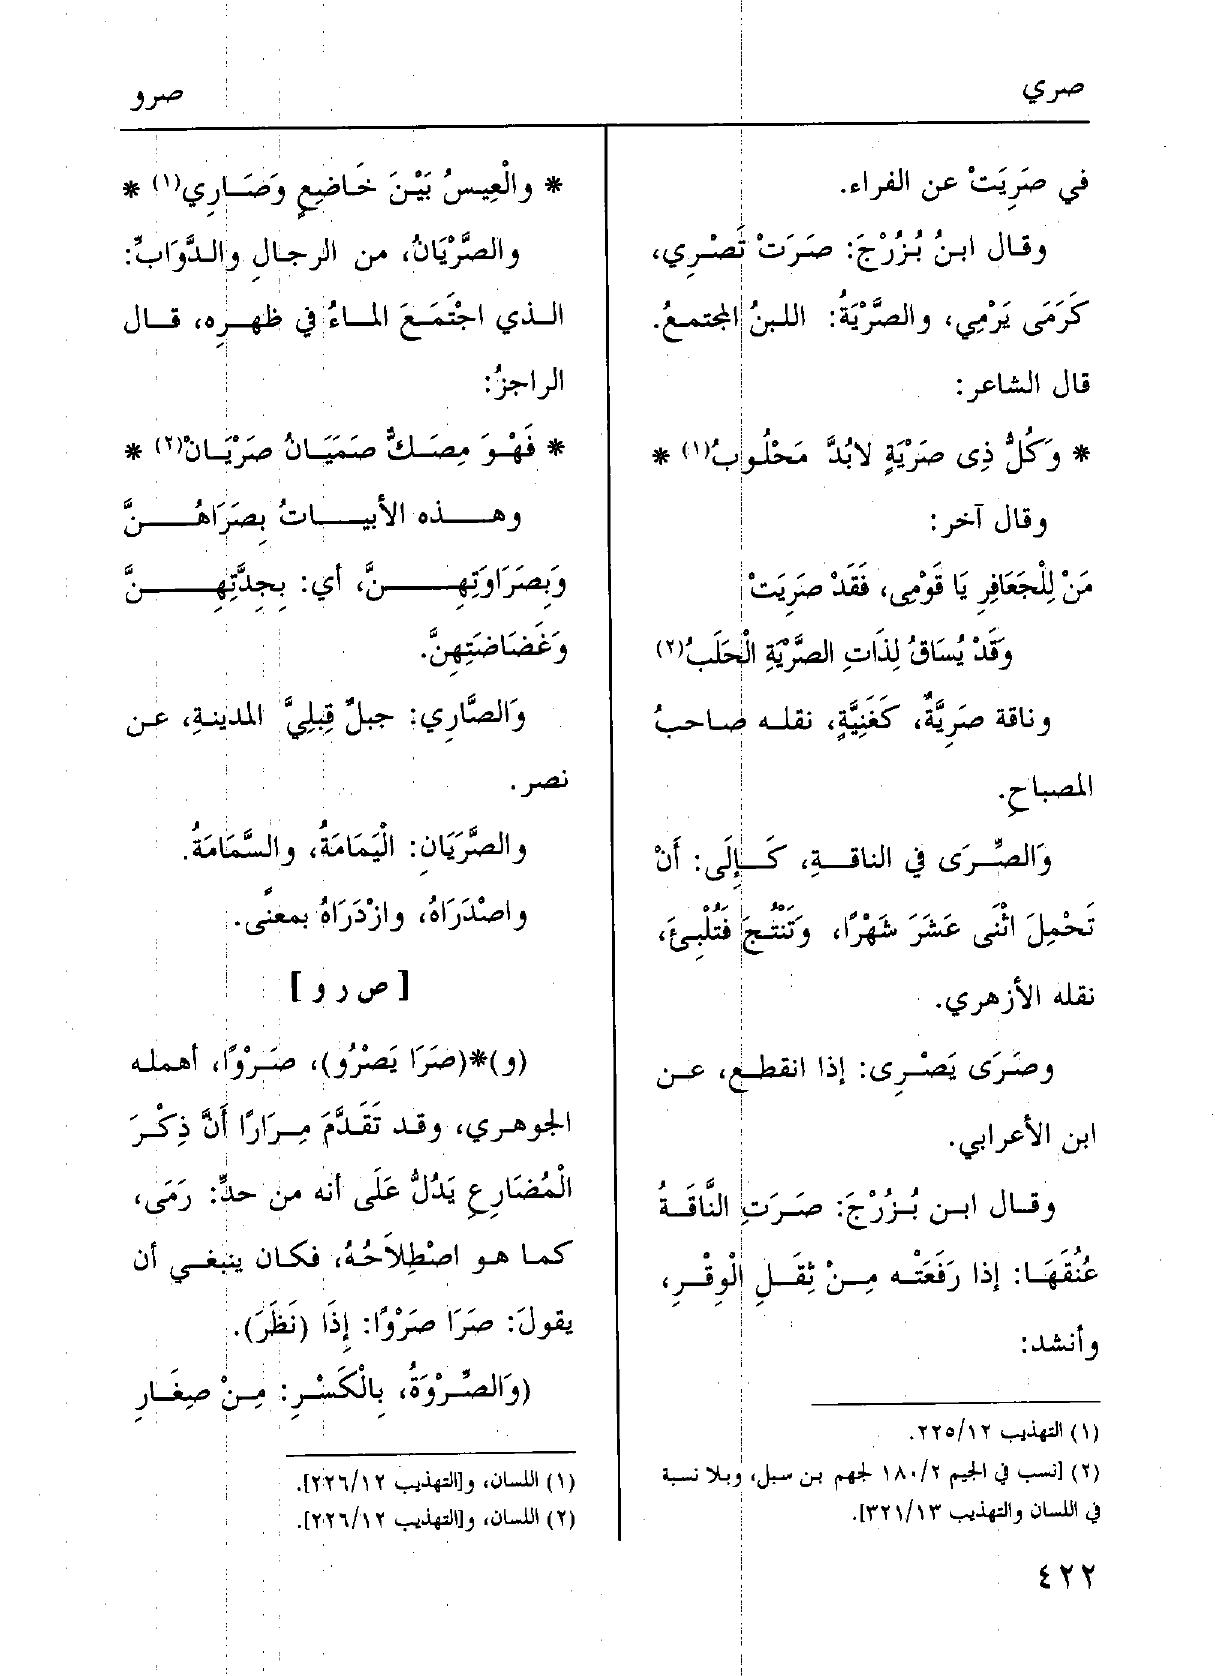 صري
صرو
في صَرِيَتْ عن الفراء.
وقال ابنُ بُزُرْجَ: صَرَتْ تَصْرِي،
كَرَمَى يَرْمِي، والصَّرْيَةُ: اللبنُ المجتمعُ.
قال الشاعر:
* وَكُلُّ ذِى صَرْيَةٍ لابُدَّ مَحْلُوبُ(١) *
وقال آخر:
مَنْ لِلْجَعَافِرِ يَا قَوْمِى، فَقَدْ صَرِيَتْ
وَقَدْ يُسَاقُ لِذَاتِ الصَّرْيَةِ الْحَلَبُ(٢)
وناقة صَرِيَّةٌ، كَغَنِيَّةٍ، نقله صاحبُ
المصباحِ.
وَالصِّرَى في الناقةِ، كَإِلَى: أَنْ
تَحْمِلَ اثْنَى عَشَرَ شَهْرًا، وَتَنْتُجَ فَتُلْبِئَ،
نقله الأزهري.
وصَرَى يَصْرِى: إذا انقطع، عن
ابن الأعرابي.
وقال ابن بُزُرْجَ: صَرَتِ النَّاقَةُ
عُنُقَهَا: إذا رَفَعَتْه مِنْ ثِقَلِ الْوِقْرِ،
وأنشد:
(١) التهذيب ٢٢٥/١٢.
(٢) [نسب في الجيم ١٨٠/٢ لجهم بن سبل، وبلا نسبة
في اللسان والتهذيب ٣٢١/١٣].
* والْعِيسُ بَيْنَ خَاضِعٍ وَصَارِي(١) *
والصَّرْيَانُ، من الرجالِ والدَّوَابِّ:
الذي اجْتَمَعَ الماءُ في ظهرِه، قال
الراجزُ:
* فَهْوَ مِصَكٌّ صَمَيَانُ صَرْيَانْ(٢) *
وهذه الأبياتُ بِصَرَاهُنَّ
وَبِصَرَاوَتِهِنَّ، أي: بِجِدَّتِهِنَّ
وَغَضَاضَتِهِنَّ.
وَالصَّارِي: جبلٌ قِبلِيَّ المدينةِ، عن
نصر.
والصَّرَيَانِ: الْيَمَامَةُ، والسَّمَامَةُ.
واصْدَرَاهُ، وازْدَرَاهُ بمعنًى.
[ ص ر و ]
(و)*(صَرَا يَصْرُو)، صَرْوًا، أهمله
الجوهري، وقد تَقَدَّمَ مِرَارًا أَنَّ ذِكْرَ
الْمُضَارِعِ يَدُلُّ عَلَى أنه من حدِّ: رَمَى،
كما هو اصْطِلاَحُهُ، فكان ينبغي أن
يقولَ: صَرَا صَرْوًا: إِذَا (نَظَرَ).
(وَالصِّرْوَةُ، بِالْكَسْرِ: مِنْ صِغَارِ
(١) اللسان، و[التهذيب ٢٢٦/١٢].
(٢) اللسان، و[التهذيب ٢٢٦/١٢].
٤٢٢